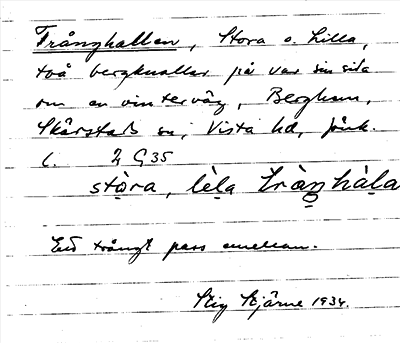 Trånghallen, Stora o. Lilla,
två bergknallar på var sin sida
om en vinterväg, Berghem,
Skärstads sn, Vista hd, Jönk.
l. 2 G35
stòra, lèla tràŋhàla
Ett trångt pass emellan.
Stig Stjärne 1934.